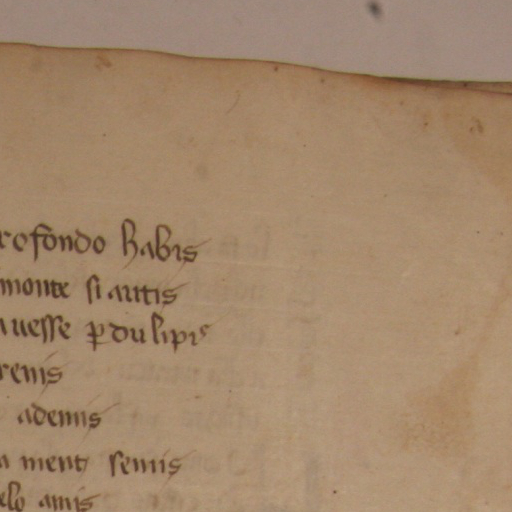 rofondo habis
monte si autis
auesse ꝑdu lipꝛe
renis
ademis
a ment semis
elo amis